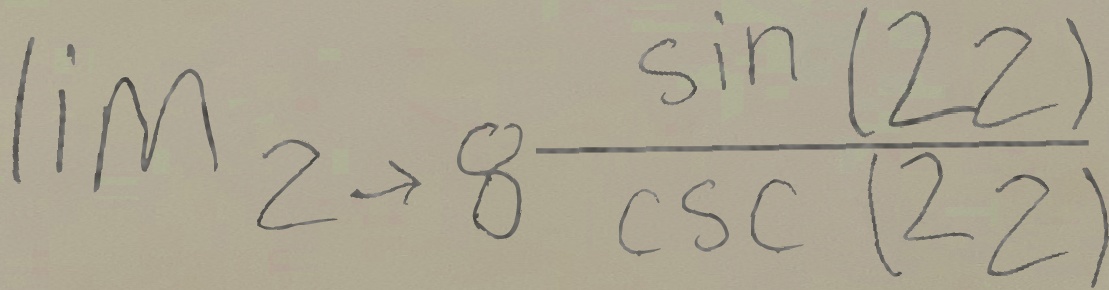 lim z→8 sin (2z) / csc (2z)